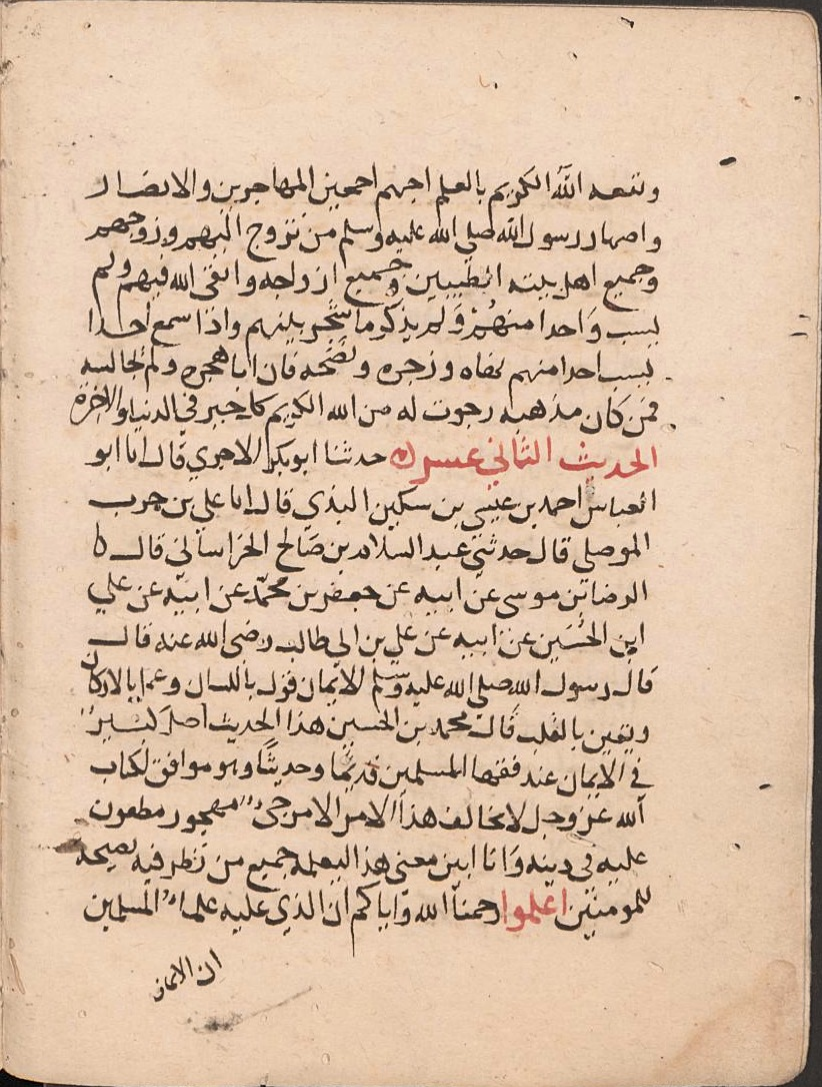 ونفعه الله الكريم بالعلم احبهم اجمعين المهاجرين والانصار
واصهار رسول الله صلي الله عليه وسلم من تزوج اليهم وزوجهم
وجميع اهل بيته الطيبين وجميع ازواجه واتقى الله فيهم ولم
يسب واحدا منهم ولم يذكر ما شجر بينهم واذا سمع احدا
يسب احدا منهم نهاه وزجره ونصحه فان ابا هجره ولم يجالسه
فمن كان مذهبه رجوت له من الله الكريم كل خير في الدنيا والاخرة
الحديث الثاني عشر حدثنا ابو بكر الاجري قال انا ابو
العباس احمد بن عيسى بن سكين البلدي قال انا علي بن حرب
الموصلي قال حدثني عبد السلام بن صالح الخراساني قال نا
الرضا بن موسى عن ابيه عن جعفر بن محمد عن ابيه عن علي
ابن الحسين عن ابيه عن علي بن ابي طالب رضى الله عنه قال
قال رسول الله صلي الله عليه وسلم الايمان قول باللسان وعمل بالاركان
ويقين بالقلب قال محمد بن الحسين هذا الحديث اصل كبير
في الايمان عند فقها المسلمين قديما وحديثا وهو موافق لكتاب
الله عز وجل لا يخالف هذا الامر الا مرجئ مهجور مطعون
عليه في دينه وانا ابين معنى هذا ليعلمه جميع من نظر فيه نصيحة
للمومنين اعلموا رحمنا الله واياكم ان الذي عليه علماء المسلمين
ان الايمان